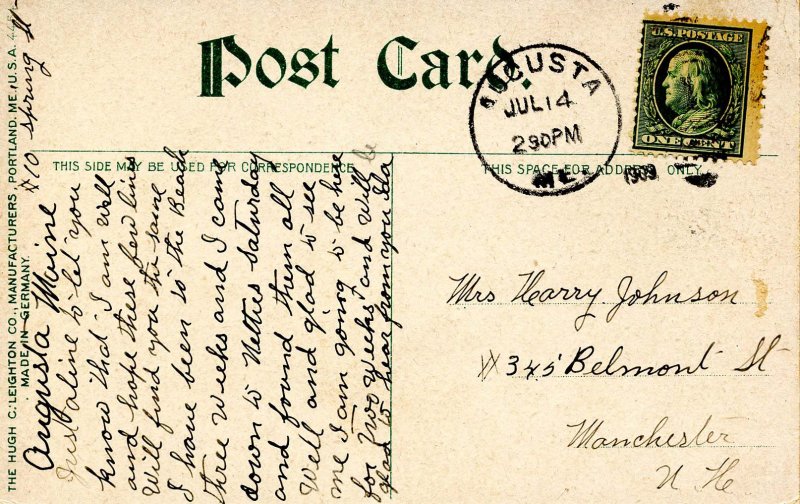 Post Card.
THIS SIDE MAY BE USED FOR CORRESPONDENCE
THIS SPACE FOR ADDRESS ONLY
THE HUGH C. LEIGHTON CO., MANUFACTURERS, PORTLAND, ME., U.S.A.
MADE IN GERMANY
AUGUSTA
JUL 14
230PM
ME.
1909
U.S. POSTAGE
ONE CENT
#10 Spring St
Augusta Maine
Just a line to let you
know that I am well
and hope these few lines
Will find you the same
I have been to the Beach
three weeks and I came
down to Netties Saturday
and found them all
Well and glad to see
me I am going to be here
for Two Weeks and will be
glad to hear from you Ida
Mrs Harry Johnson
#345 Belmont St
Manchester
N H